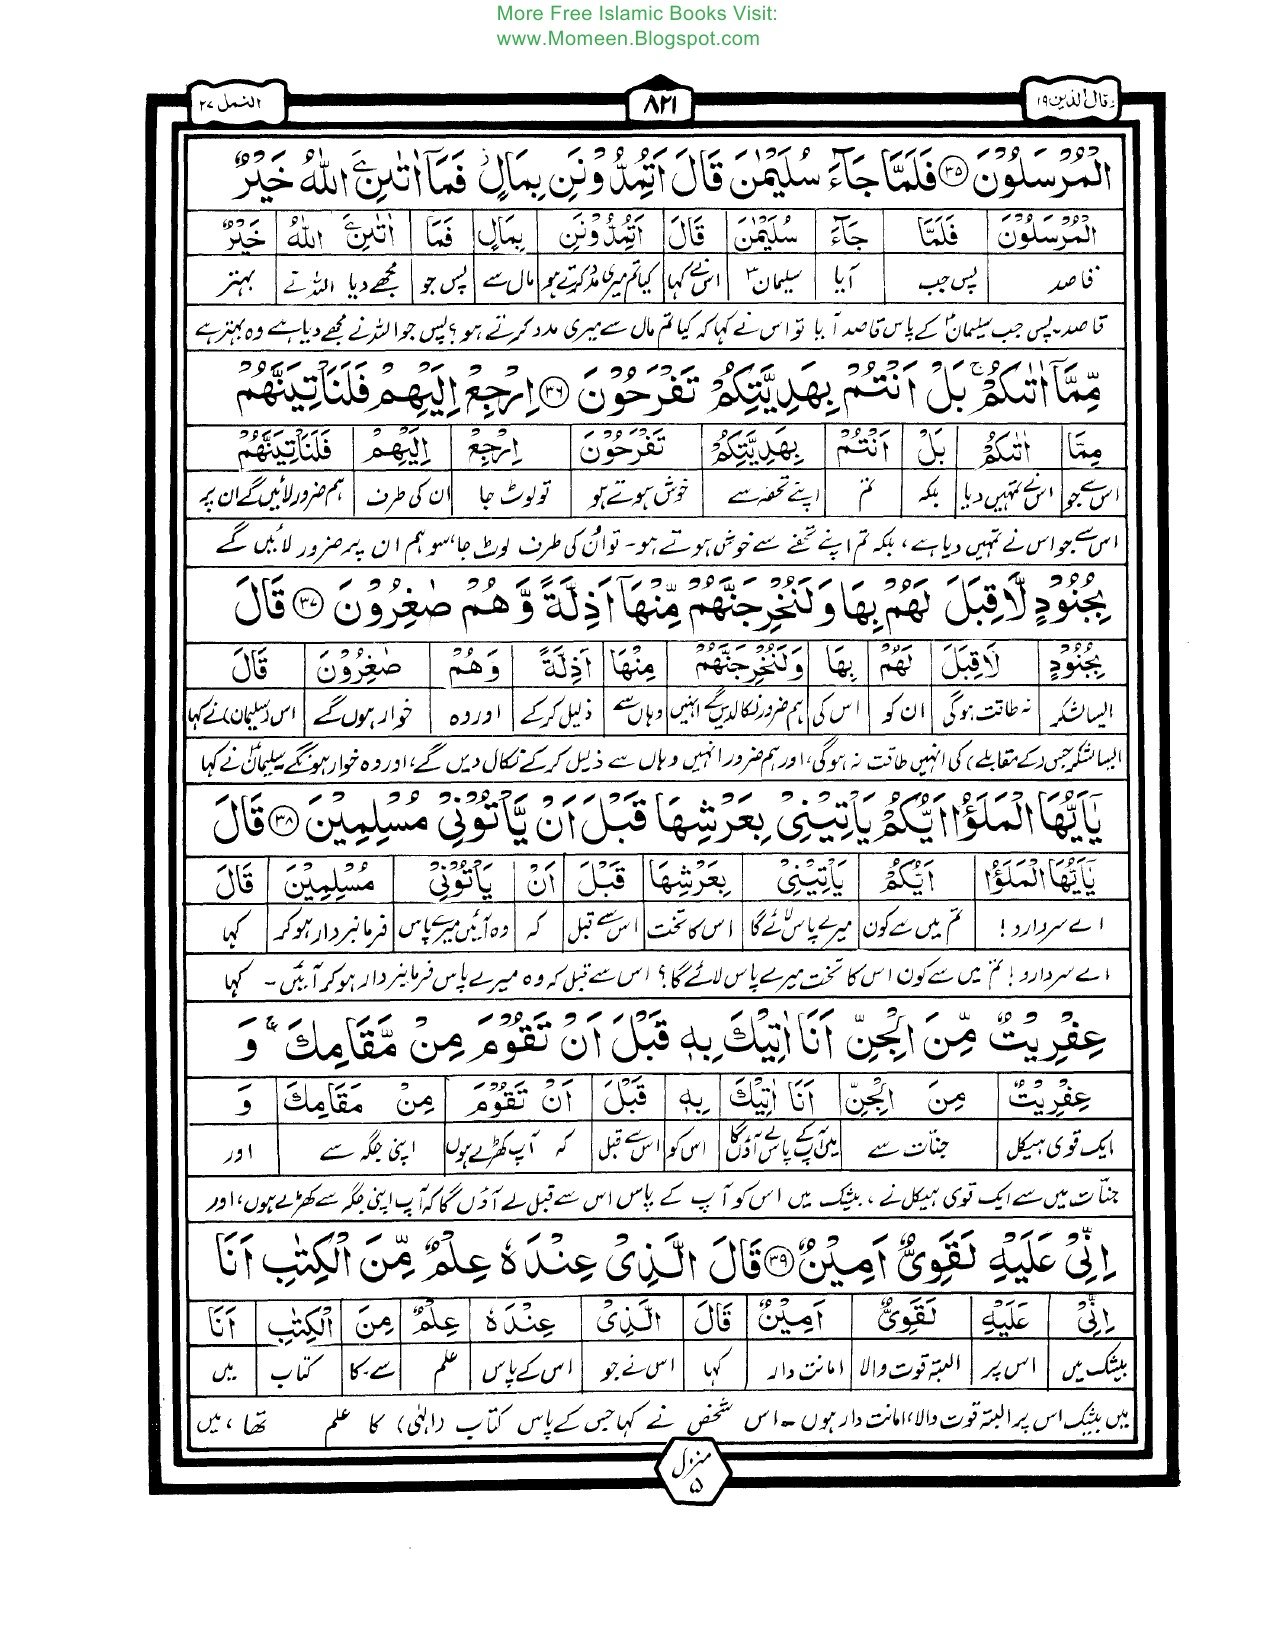 More Free Islamic Books Visit:
www.Momeen.Blogspot.com
وقال الذین ۱۹
۸۲۱
النمل ۲۷
الْمُرْسَلُوْنَ ۳۵ فَلَمَّا جَآءَ سُلَیْمٰنَ قَالَ اَتُمِدُّوْنَنِ بِمَالٍ فَمَاۤ اٰتٰىنِۦَ اللّٰهُ خَیْرٌ
الْمُرْسَلُوْنَ فَلَمَّا جَآءَ سُلَیْمٰنَ قَالَ اَتُمِدُّوْنَنِ بِمَالٍ فَمَا اٰتٰىنِۦَ اللّٰهُ خَیْرٌ
قاصد پس جب آیا سلیمانؑ اس نے کہا کیا تم میری مدد کرتے ہو مال سے پس جو مجھے دیا اللہ نے بہتر
قاصد۔ پس جب سلیمانؑ کے پاس قاصد آیا تو اس نے کہا کہ کیا تم مال سے میری مدد کرتے ہو؟ پس جو اللہ نے مجھے دیا ہے وہ بہتر ہے
مِّمَّاۤ اٰتٰىكُمْ ۚ بَلْ اَنْتُمْ بِهَدِیَّتِكُمْ تَفْرَحُوْنَ ۳۶ اِرْجِعْ اِلَیْهِمْ فَلَنَاْتِیَنَّهُمْ
مِمَّا اٰتٰىكُمْ بَلْ اَنْتُمْ بِهَدِیَّتِكُمْ تَفْرَحُوْنَ اِرْجِعْ اِلَیْهِمْ فَلَنَاْتِیَنَّهُمْ
اس سے جو اس نے تمہیں دیا بلکہ تم اپنے تحفہ سے خوش ہوتے ہو تو لوٹ جا ان کی طرف ہم ضرور لائیں گے ان پر
اس سے جو اس نے تمہیں دیا ہے، بلکہ تم اپنے تحفے سے خوش ہوتے ہو۔ تو ان کی طرف لوٹ جا، سو ہم ان پر ضرور لائیں گے
بِجُنُوْدٍ لَّا قِبَلَ لَهُمْ بِهَا وَلَنُخْرِجَنَّهُمْ مِّنْهَاۤ اَذِلَّةً وَّهُمْ صٰغِرُوْنَ ۳۷ قَالَ
بِجُنُوْدٍ لَا قِبَلَ لَهُمْ بِهَا وَلَنُخْرِجَنَّهُمْ مِنْهَا اَذِلَّةً وَهُمْ صٰغِرُوْنَ قَالَ
ایسا لشکر نہ طاقت ہوگی ان کو اس کی ہم ضرور نکالدیں گے انہیں وہاں سے ذلیل کرکے اور وہ خوار ہوں گے اس (سلیمان) نے کہا
ایسا لشکر جس (کے مقابلے) کی انہیں طاقت نہ ہوگی، اور ہم ضرور انہیں وہاں سے ذلیل کرکے نکال دیں گے، اور وہ خوار ہونگے سلیمانؑ نے کہا
یٰۤاَیُّهَا الْمَلَؤُا اَیُّكُمْ یَاْتِیْنِیْ بِعَرْشِهَا قَبْلَ اَنْ یَّاْتُوْنِیْ مُسْلِمِیْنَ ۳۸ قَالَ
یٰۤاَیُّهَا الْمَلَؤُا اَیُّكُمْ یَاْتِیْنِیْ بِعَرْشِهَا قَبْلَ اَنْ یَاْتُوْنِیْ مُسْلِمِیْنَ قَالَ
اے سردارو! تم میں سے کون میرے پاس لائے گا اس کا تخت اس سے قبل کہ وہ آئیں میرے پاس فرمانبردار ہو کر کہا
اے سردارو! تم میں سے کون اس کا تخت میرے پاس لائے گا؟ اس سے قبل کہ وہ میرے پاس فرمانبردار ہو کر آئیں۔ کہا
عِفْرِیْتٌ مِّنَ الْجِنِّ اَنَا اٰتِیْكَ بِهٖ قَبْلَ اَنْ تَقُوْمَ مِنْ مَّقَامِكَ ۚ وَ
عِفْرِیْتٌ مِنَ الْجِنِّ اَنَا اٰتِیْكَ بِهٖ قَبْلَ اَنْ تَقُوْمَ مِنْ مَقَامِكَ وَ
ایک قوی ہیکل جنّات سے میں آپ کے پاس لے آؤں گا اس کو اس سے قبل کہ آپ کھڑے ہوں اپنی جگہ سے اور
جنّات میں سے ایک قوی ہیکل نے، بیشک میں اس کو آپ کے پاس اس سے قبل لے آؤں گا کہ آپ اپنی جگہ سے کھڑے ہوں، اور
اِنِّیْ عَلَیْهِ لَقَوِیٌّ اَمِیْنٌ ۳۹ قَالَ الَّذِیْ عِنْدَهٗ عِلْمٌ مِّنَ الْكِتٰبِ اَنَا
اِنِّیْ عَلَیْهِ لَقَوِیٌّ اَمِیْنٌ قَالَ الَّذِیْ عِنْدَهٗ عِلْمٌ مِنَ الْكِتٰبِ اَنَا
بیشک میں اس پر البتہ قوت والا امانت دار کہا اس نے جو اس کے پاس علم سے۔کا کتاب میں
میں بیشک اس پر البتہ قوت والا، امانت دار ہوں۔ اس شخص نے کہا جس کے پاس کتاب (الٰہی) کا علم تھا، میں
منزل ۵